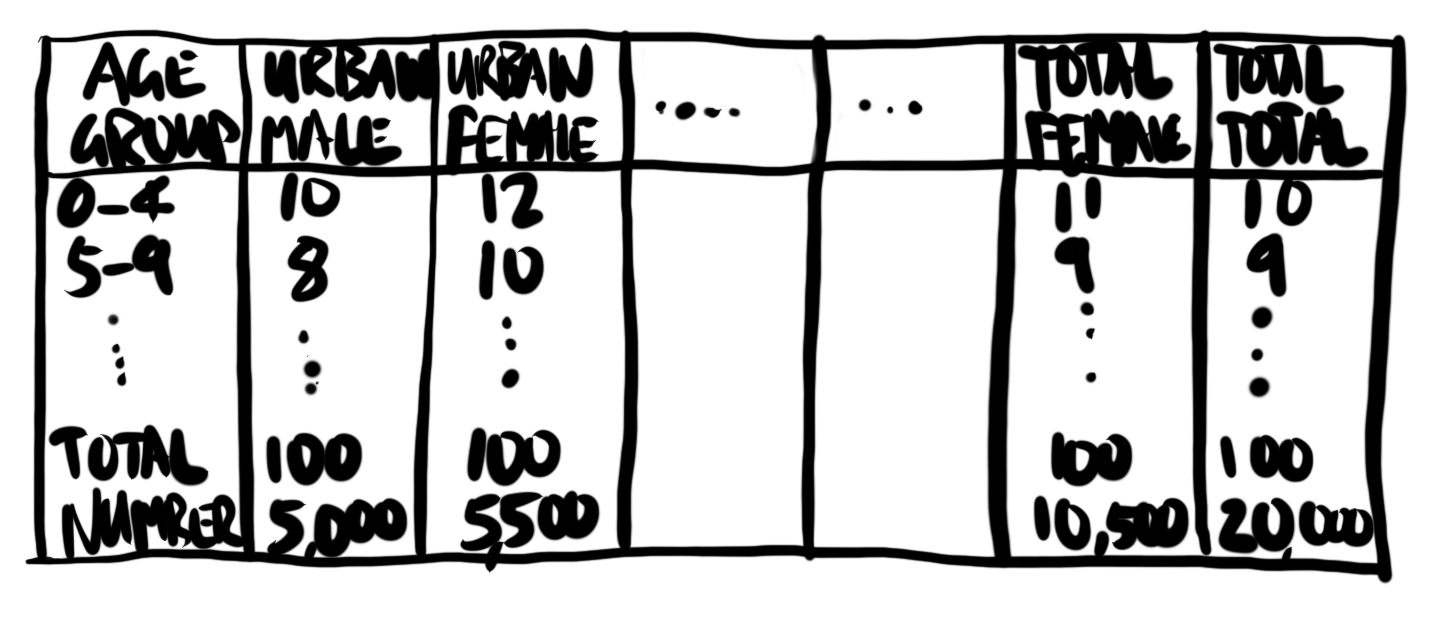 AGE GROUP URBAN MALE URBAN FEMALE .... ... TOTAL FEMALE TOTAL TOTAL
0-4 10 12 11 10
5-9 8 10 9 9
TOTAL 100 100 100 100
NUMBER 5,000 5,500 10,500 20,000